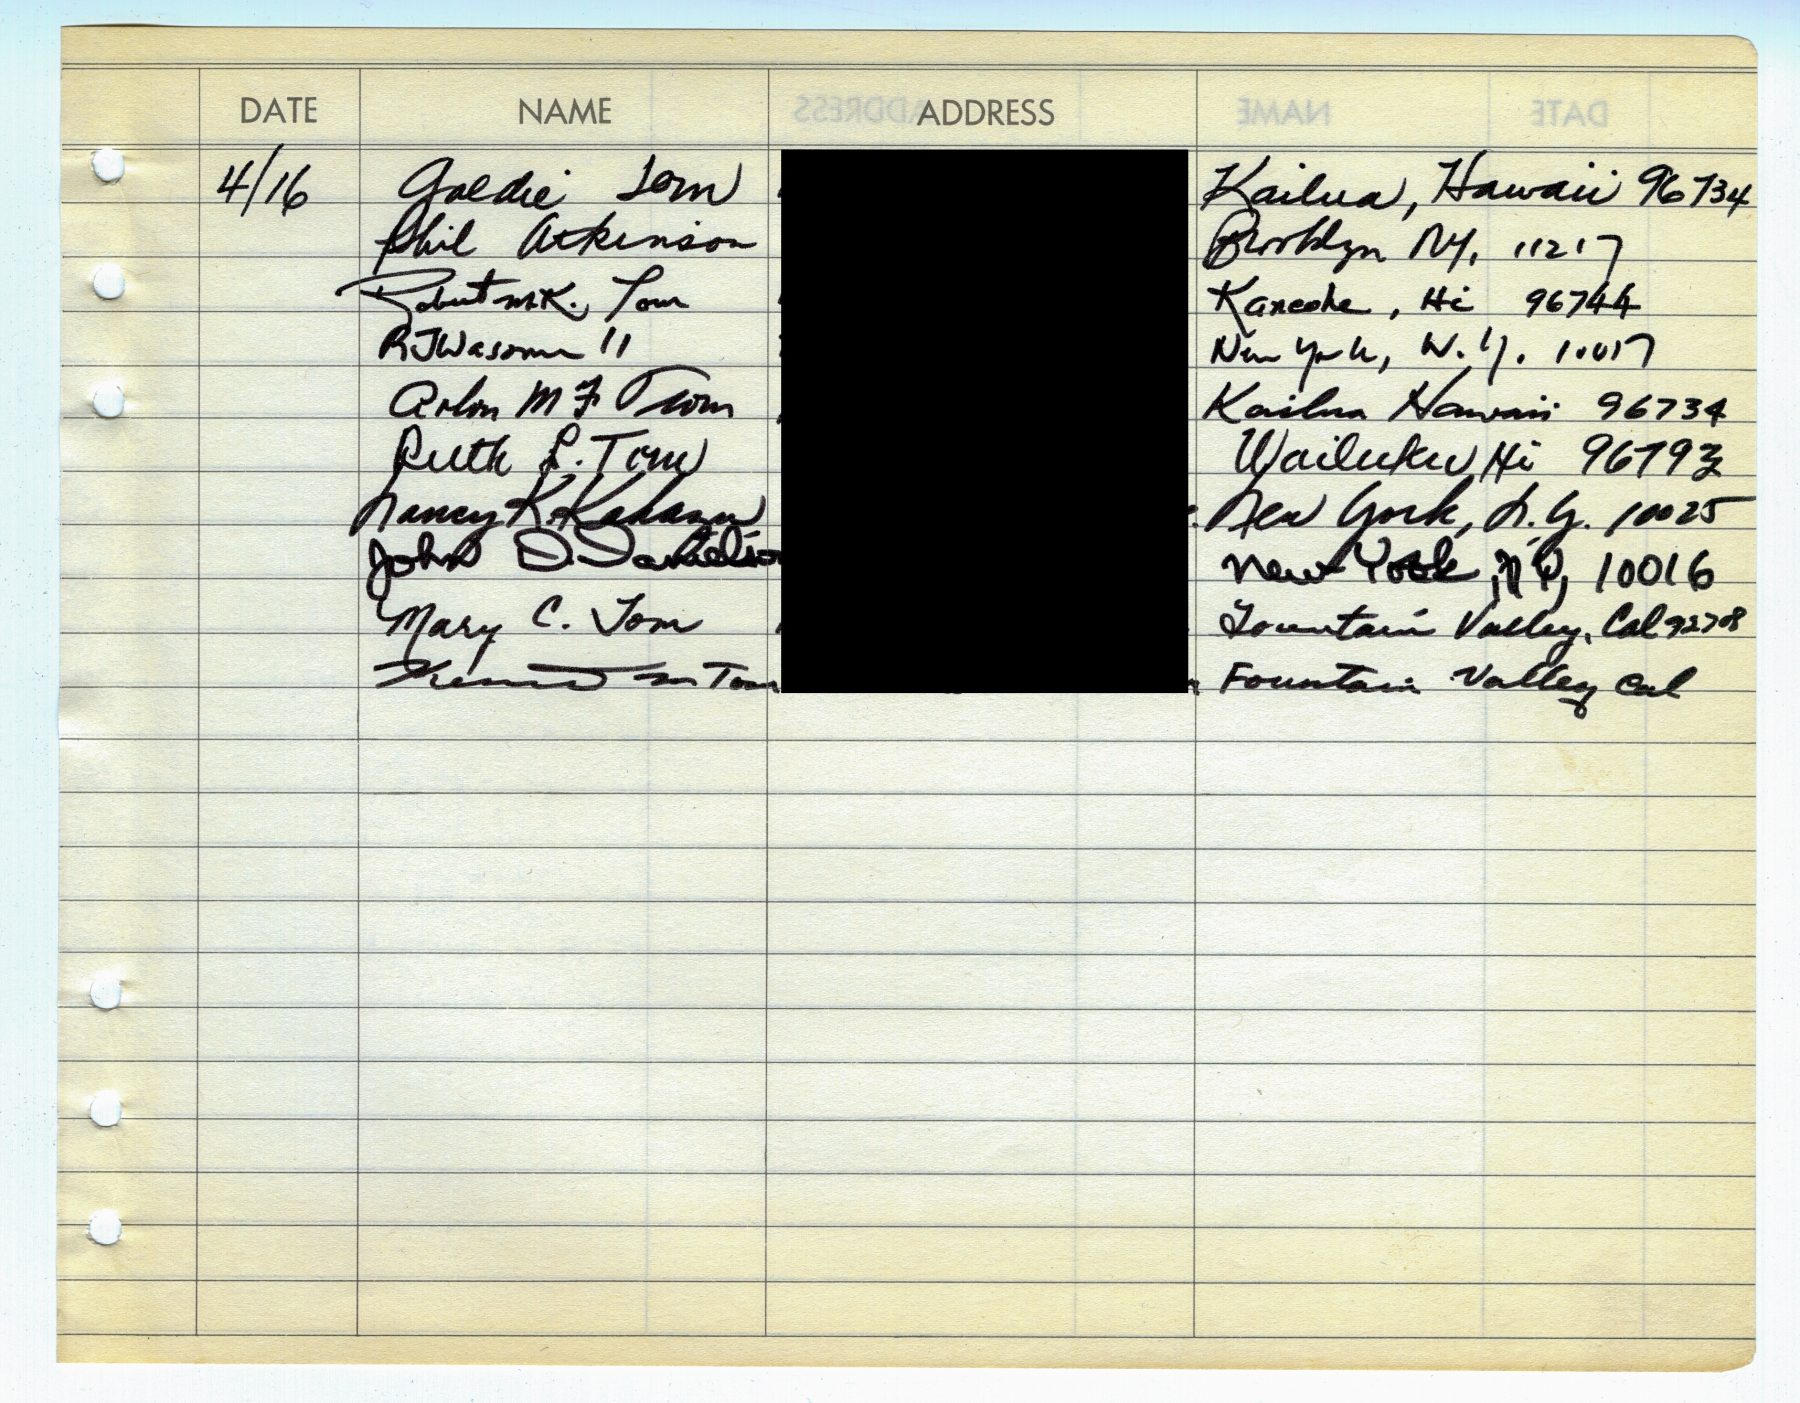 DATE NAME ADDRESS
4/16 Goldie Tom Kailua, Hawaii 96734
Phil Atkinson Brooklyn NY, 11217
Robert M.K. Tom Kaneohe, Hi 96744
RJWasson II New York, N.Y. 10017
Arlon M F Tom Kailua Hawaii 96734
Ruth L. Tom Wailuku Hi 96793
Nancy K. Kahazu New York, N.Y. 10025
John D. Danielson New York, NY, 10016
Mary C. Tom Fountain Valley, Cal 92708
Tom Fountain Valley Cal